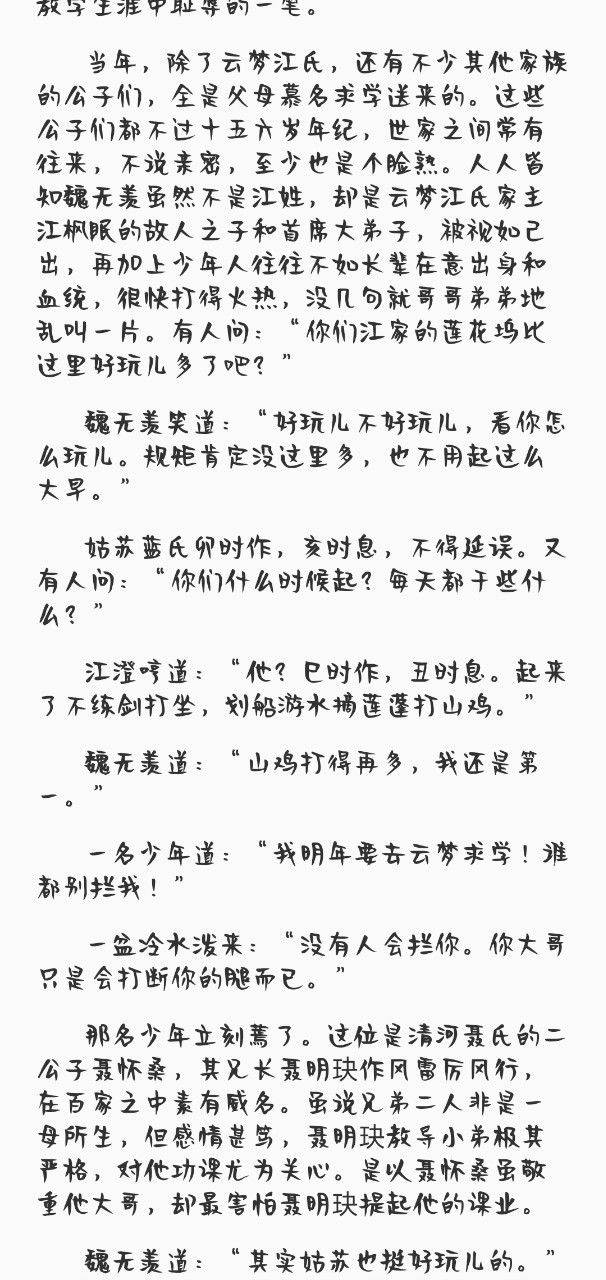 教学生涯中耻辱的一笔。
当年，除了云梦江氏，还有不少其他家族
的公子们，全是父母慕名求学送来的。这些
公子们都不过十五六岁年纪，世家之间常有
往来，不说亲密，至少也是个脸熟。人人皆
知魏无羡虽然不是江姓，却是云梦江氏家主
江枫眠的故人之子和首席大弟子，被视如己
出，再加上少年人往往不如长辈在意出身和
血统，很快打得火热，没几句就哥哥弟弟地
乱叫一片。有人问：“你们江家的莲花坞比
这里好玩儿多了吧？”
魏无羡笑道：“好玩儿不好玩儿，看你怎
么玩儿。规矩肯定没这里多，也不用起这么
大早。”
姑苏蓝氏卯时作，亥时息，不得延误。又
有人问：“你们什么时候起？每天都干些什
么？”
江澄哼道：“他？巳时作，丑时息。起来
了不练剑打坐，划船游水摘莲蓬打山鸡。”
魏无羡道：“山鸡打得再多，我还是第
一。”
一名少年道：“我明年要去云梦求学！谁
都别拦我！”
一盆冷水泼来：“没有人会拦你。你大哥
只是会打断你的腿而已。”
那名少年立刻蔫了。这位是清河聂氏的二
公子聂怀桑，其兄长聂明玦作风雷厉风行，
在百家之中素有威名。虽说兄弟二人非是一
母所生，但感情甚笃，聂明玦教导小弟极其
严格，对他功课尤为关心。是以聂怀桑虽敬
重他大哥，却最害怕聂明玦提起他的课业。
魏无羡道：“其实姑苏也挺好玩儿的。”